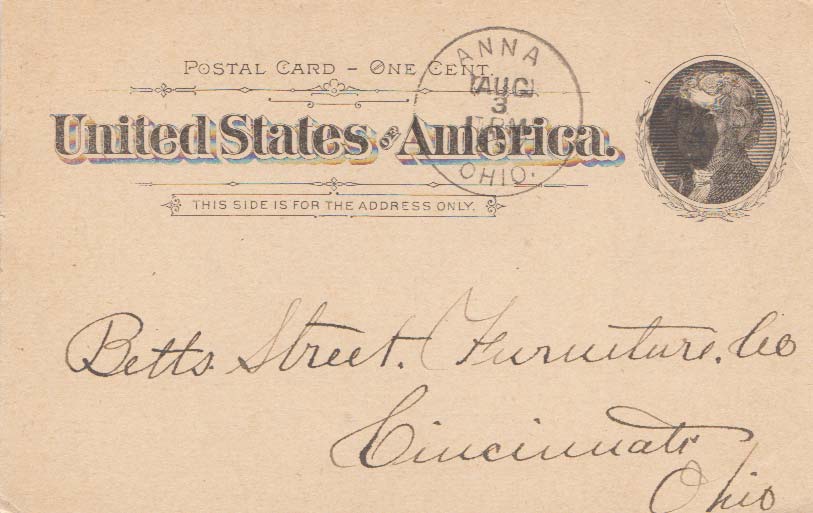 POSTAL CARD – ONE CENT.
United States OF America.
THIS SIDE IS FOR THE ADDRESS ONLY.
ANNA
AUG
3
OHIO.
Betts. Street. Furniture. Co
Cincinnati
Ohio